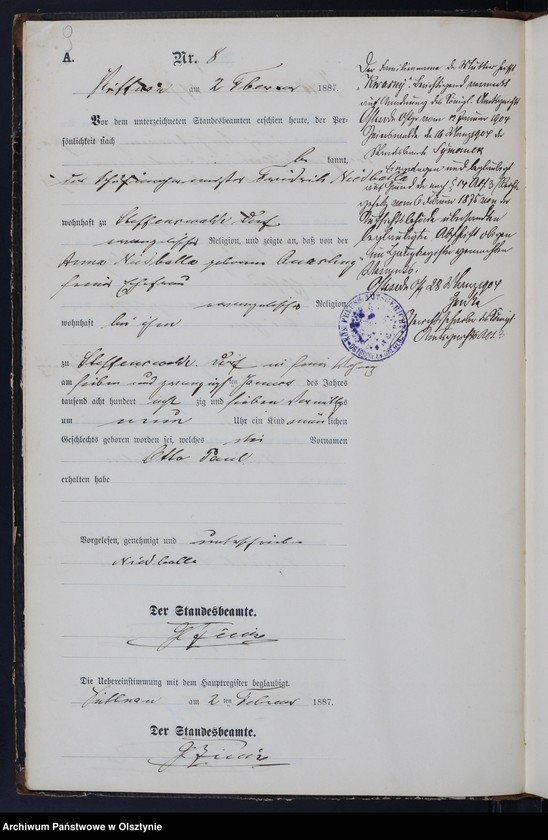 9
A.
Nr. 8
am 2 Februar 1887.
Vor dem unterzeichneten Standesbeamten erschien heute, der Per-
sönlichkeit nach
be kannt,
der Friedrich Niedballa
wohnhaft zu Steffenswalde Dorf
evangelischer Religion, und zeigte an, daß von der
Anna Niedballa geborenen
seiner Ehefrau
evangelischer Religion,
wohnhaft bei ihm
zu Steffenswalde Dorf in seiner Wohnung
am sieben und zwanzigsten Januar des Jahres
tausend acht hundert acht zig und sieben Vormittags
um neun Uhr ein Kind männlichen
Geschlechts geboren worden sei, welches die Vornamen
Otto Paul
erhalten habe
Vorgelesen, genehmigt und unterschrieben
Niedballa
Der Standesbeamte.
Die Uebereinstimmung mit dem Hauptregister beglaubigt.
am 2 ten Februar 1887.
Der Standesbeamte.
Der Familienname der Mutter heißt
Berichtigend vermerkt
auf Anordnung des Königl. Amtsgerichts
Osterode Ostpr. vom Januar 1904
den 16 März 1904
Der Standesbeamte Symanek
und beglaubigt
auf Grund der nach § 14 Abs. 3
gesetz vom 6 Februar 1875 von der
Aufsichtsbehörde übersandten
beglaubigten Abschrift obigen
im Hauptregister gemachten
Vermerks.
Osterode Op 28 März 1904
Gerichtsschreiber des Königl.
Amtsgerichts
Archiwum Państwowe w Olsztynie